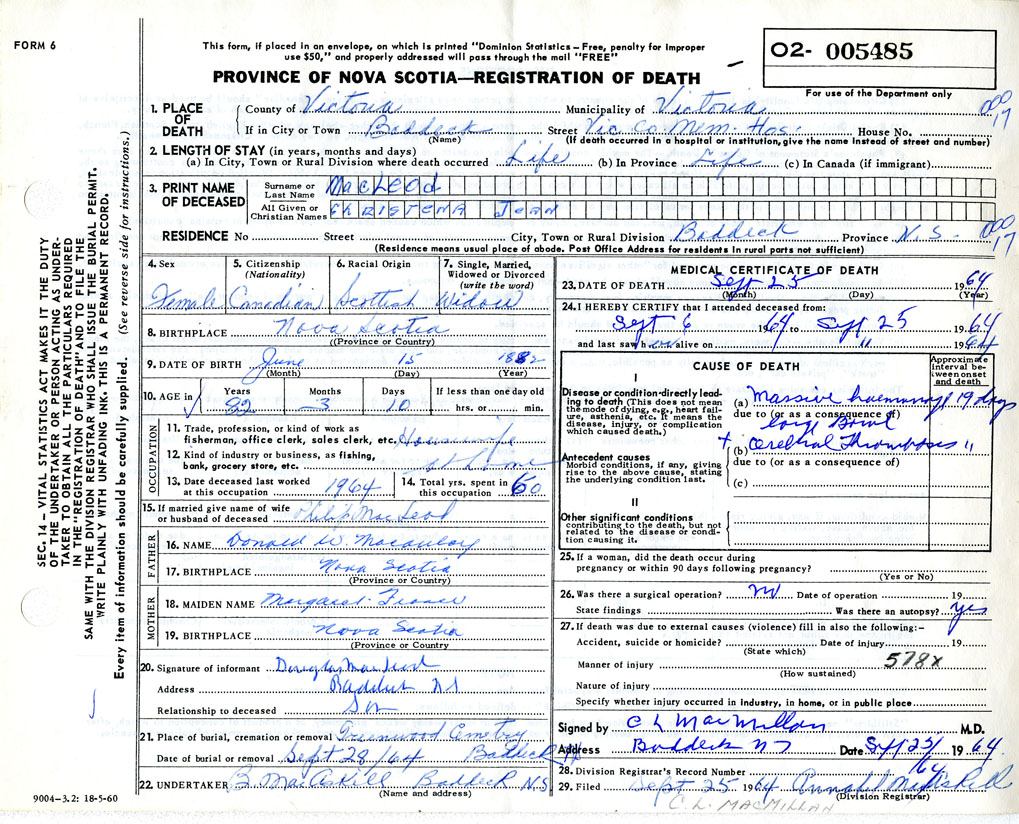 FORM 6
This form, if placed in an envelope, on which is printed "Dominion Statistics – Free, penalty for improper
use $50," and properly addressed will pass through the mail "FREE"
PROVINCE OF NOVA SCOTIA—REGISTRATION OF DEATH
O2- 005485
For use of the Department only
1. PLACE OF DEATH
County of Victoria Municipality of Victoria
000 17
If in City or Town Baddeck Street Vic. Co. Mem. Hos. House No.
(Name) (If death occurred in a hospital or institution, give the name instead of street and number)
2. LENGTH OF STAY (in years, months and days)
(a) In City, Town or Rural Division where death occurred Life (b) In Province Life (c) In Canada (if immigrant)
3. PRINT NAME OF DECEASED
Surname or Last Name MacLeod
All Given or Christian Names CHRISTENA Jean
RESIDENCE No Street City, Town or Rural Division Baddeck Province N.S. 000 17
(Residence means usual place of abode. Post Office Address for residents in rural parts not sufficient)
4. Sex 5. Citizenship (Nationality) 6. Racial Origin 7. Single, Married, Widowed or Divorced (write the word)
Female Canadian Scottish Widow
8. BIRTHPLACE Nova Scotia
((Province or Country)
9. DATE OF BIRTH June 15 1882
(Month) (Day) (Year)
10. AGE in Years Months Days If less than one day old
82 3 10 hrs. or min.
OCCUPATION
11. Trade, profession, or kind of work as
fisherman, office clerk, sales clerk, etc. Housewife
12. Kind of industry or business, as fishing,
bank, grocery store, etc. at home
13. Date deceased last worked at this occupation 1964 14. Total yrs. spent in this occupation 60
15. If married give name of wife
or husband of deceased Philip MacLeod
FATHER
16. NAME Donald W. Macaulay
17. BIRTHPLACE Nova Scotia
(Province or Country)
MOTHER
18. MAIDEN NAME Margaret Fraser
19. BIRTHPLACE Nova Scotia
(Province or Country
20. Signature of informant Douglas MacLeod
Address Baddeck NS
Relationship to deceased Son
21. Place of burial, cremation or removal Greenwood Cemetry
Date of burial or removal Sept 28/64 Baddeck
22. UNDERTAKER B. MacAskill Baddeck N.S.
(Name and address)
9004-3.2: 18-5-60
MEDICAL CERTIFICATE OF DEATH
23. DATE OF DEATH Sept 25 1964
(Month) (Day) (Year)
24. I HEREBY CERTIFY that I attended deceased from:
Sept 6 1964 to Sept 25 1964
and last saw h er alive on " 1964
CAUSE OF DEATH
Approximate interval between onset and death
I
Disease or condition directly leading to death (This does not mean
the mode of dying, e.g., heart failure, asthenia, etc. It means the
disease, injury, or complication
which caused death.)
(a) Massive haemorrhage 19 days
due to (or as a consequence of)
large Bowel
+ (b) Cerebral Thrombosis "
Antecedent causes
Morbid conditions, if any, giving
rise to the above cause, stating
the underlying condition last.
due to (or as a consequence of)
(c)
II
Other significant conditions
contributing to the death, but not
related to the disease or condition causing it.
25. If a woman, did the death occur during
pregnancy or within 90 days following pregnancy?
(Yes or No)
26. Was there a surgical operation? No Date of operation 19
State findings Was there an autopsy? yes
27. If death was due to external causes (violence) fill in also the following:–
Accident, suicide or homicide? Date of injury 19
(State which)
Manner of injury 578x
(How sustained)
Nature of injury
Specify whether injury occurred in industry, in home, or in public place
Signed by C L MacMillan M.D.
Address Baddeck NS Date Sept 25/ 1964
28. Division Registrar's Record Number 64
29. Filed Sept 25 1964 Annabel MacAskill
(Division Registrar)
C. L. MACMILLAN
SEC. 14 – VITAL STATISTICS ACT MAKES IT THE DUTY
OF THE UNDERTAKER OR PERSON ACTING AS UNDER-
TAKER TO OBTAIN ALL THE PARTICULARS REQUIRED
IN THE "REGISTRATION OF DEATH" AND TO FILE THE
SAME WITH THE DIVISION REGISTRAR WHO SHALL ISSUE THE BURIAL PERMIT.
WRITE PLAINLY WITH UNFADING INK. THIS IS A PERMANENT RECORD.
Every item of information should be carefully supplied. (See reverse side for instructions.)